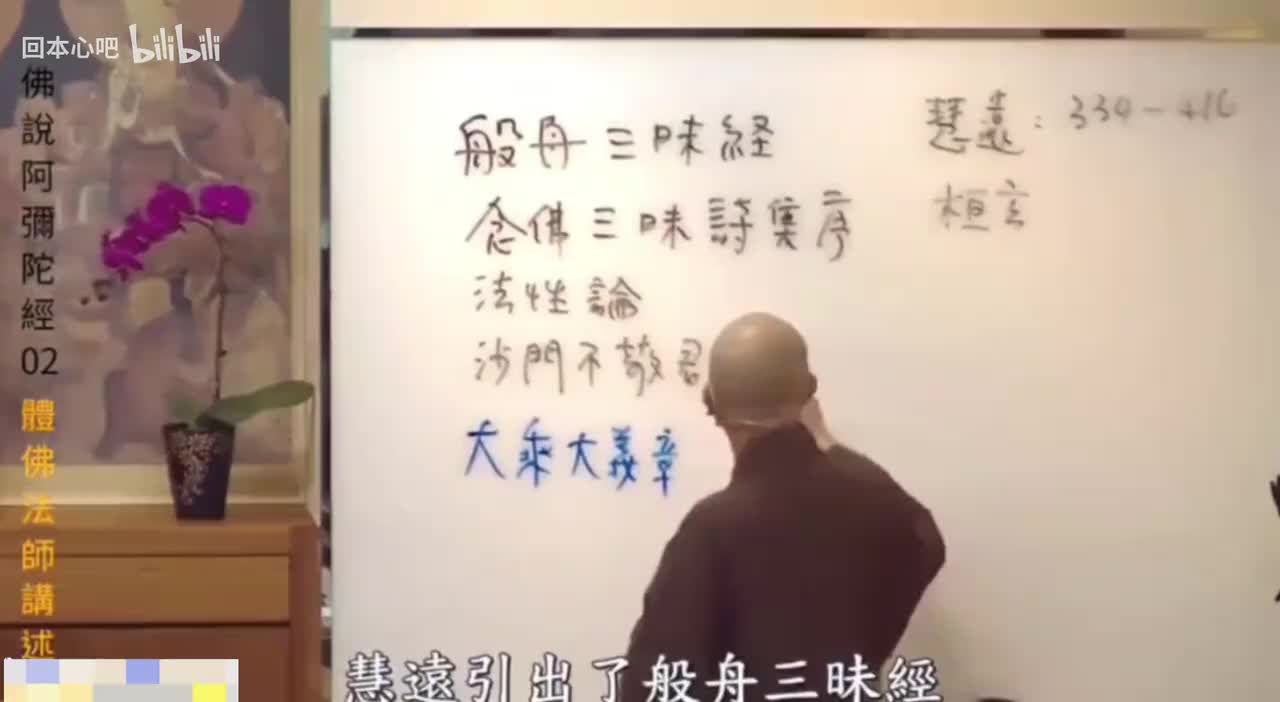 回本心吧 bilibili
佛說阿彌陀經02 體佛法師講述
般舟三昧経
念佛三昧詩集序
法性論
沙門不敬君
大乘大義章
慧遠：334-416
桓玄
慧遠引出了般舟三昧經